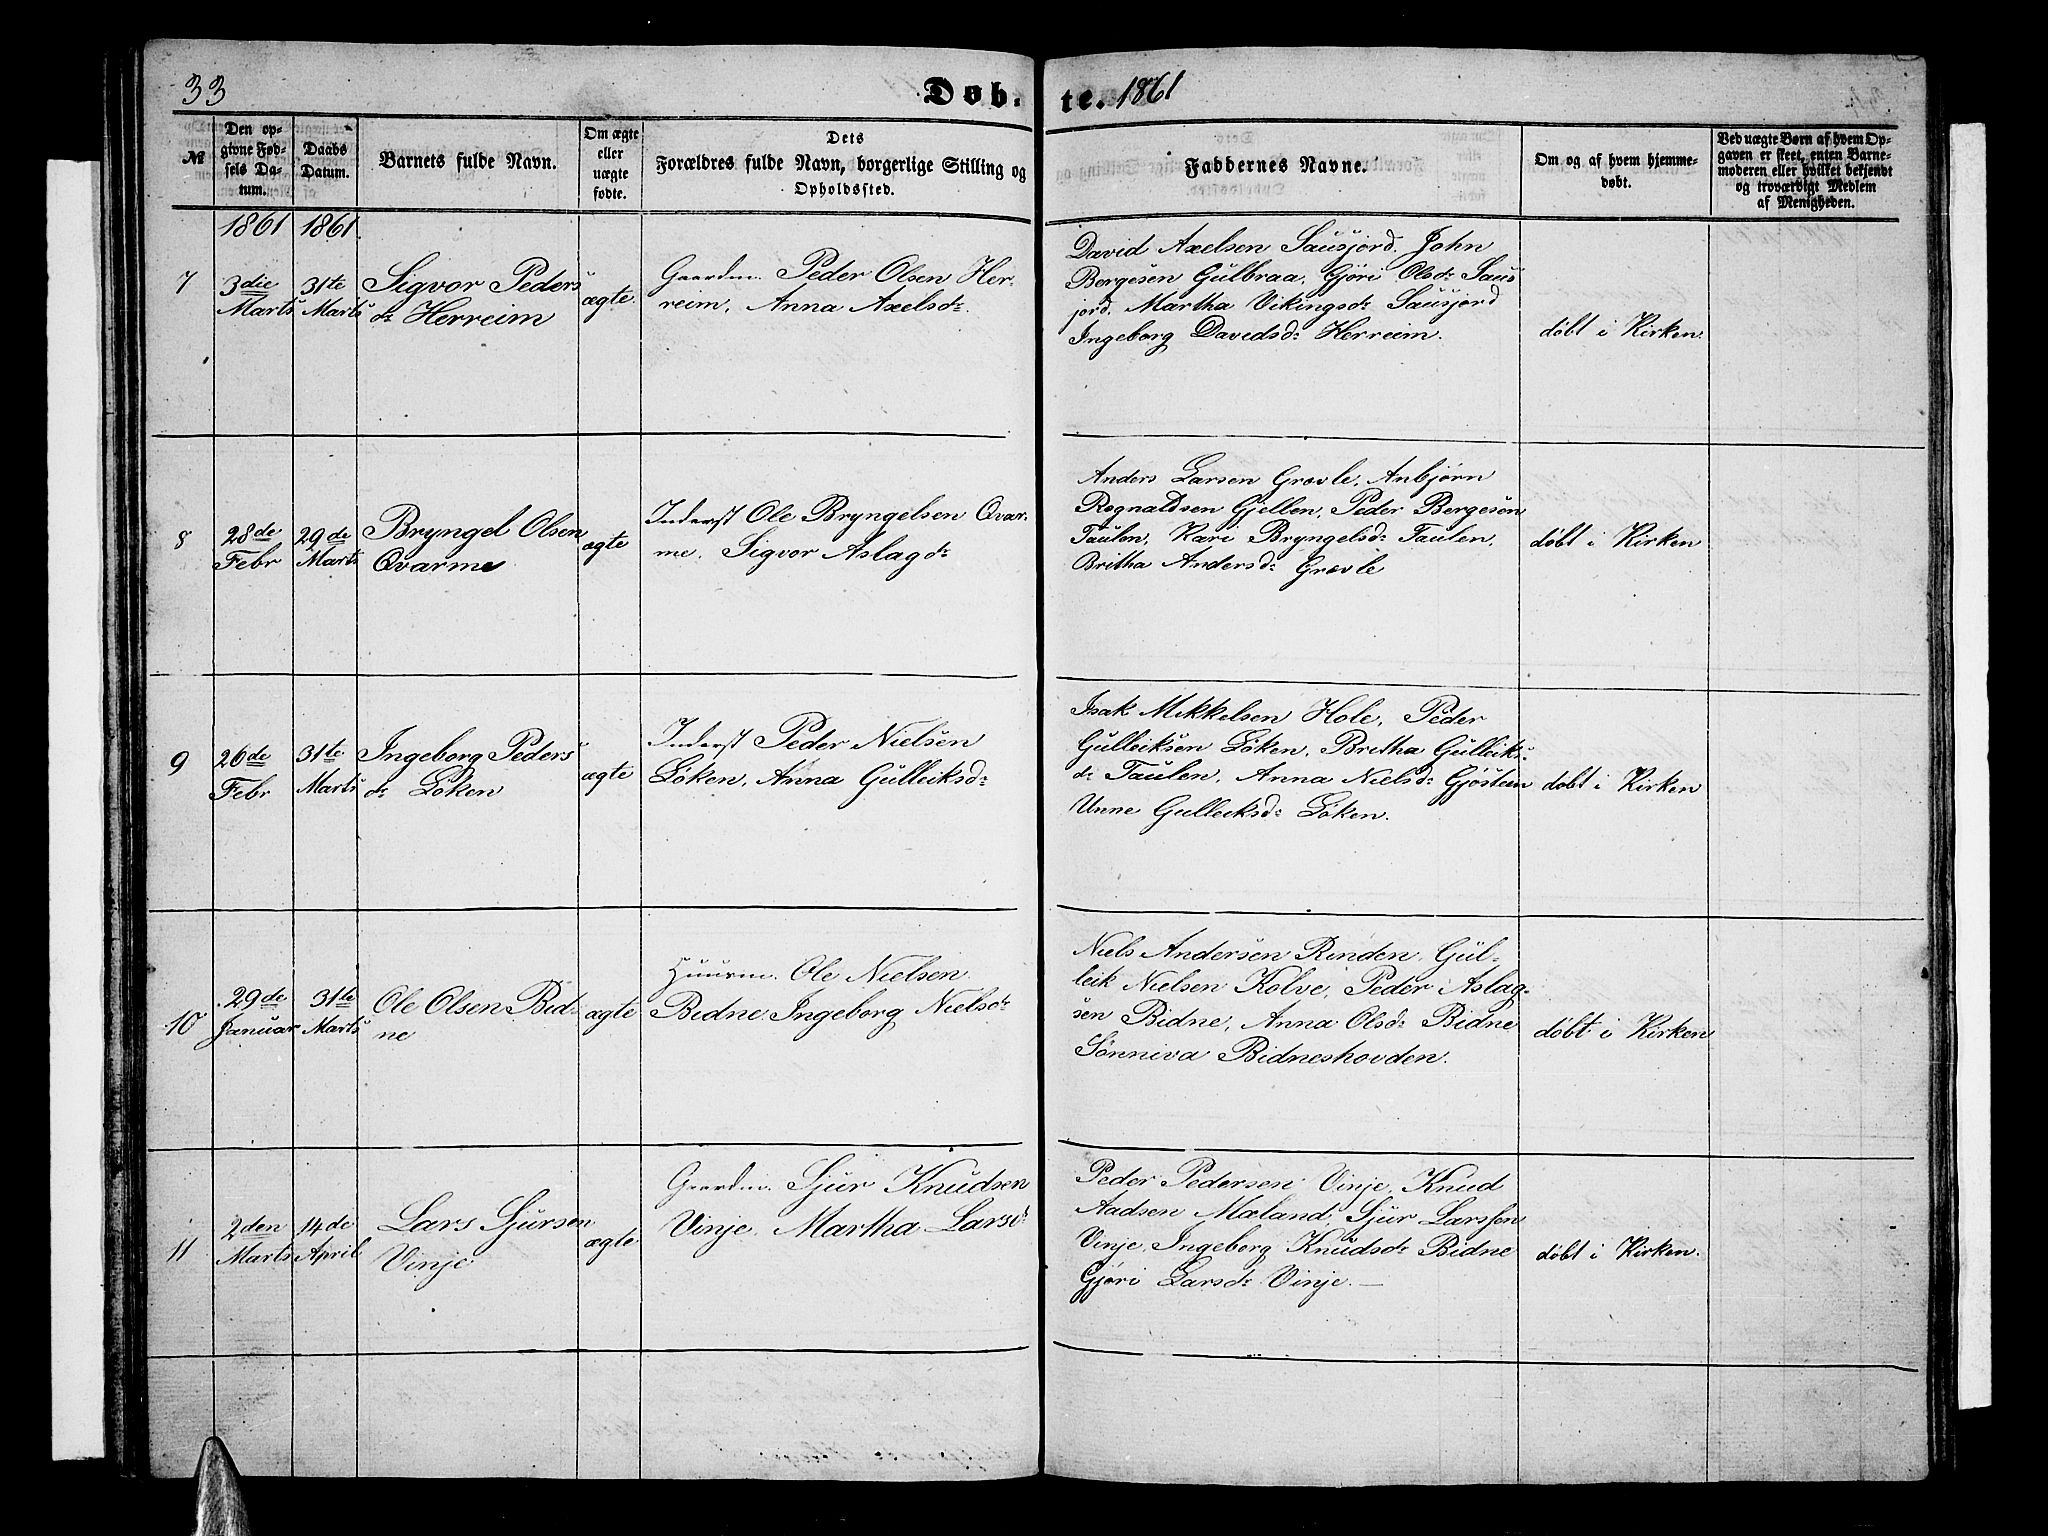 33
Døb. te. 1861
№
Den op-
givne Fød-
sels Da-
tum.
Daabs
Datum.
Barnets fulde Navn.
Om ægte
eller
uægte
fødte.
Dets
Forældres fulde Navn, borgerlige Stilling og
Opholdssted.
Faddernes Navne.
Om og af hvem hjemme-
døbt.
Ved uægte Børn af hvem Op-
gaven er skeet, enten Barne-
moderen eller hvilket bekjendt
og troværdigt Medlem
af Menigheden.
1861
1861.
7
3die
Marts
31te
Marts
Sigvor Peders
dr Herreim
ægte.
Gaardm. Peder Olsen Her-
reim, Anna Axelsdr.
David Axelsen Sausjord. John
Bergesen Gulbraa, Gjøri Olsdr Saus
jord, Martha Vikingsdr Sausjord
Ingeborg Davidsdr Herreim.
døbt i Kirken.
8
28de
Febr
29de
Marts
Bryngel Olsen
Qvarme
ægte
Inderst Ole Bryngelsen Qvar-
me. Sigvor Aslagdr
Anders Larsen Grovle, Anbjørn
Rognaldsen Gjellen, Peder Bergesen
Taulen, Kari Bryngelsdr Taulen,
Britha Andersdr Grovle
døbt i Kirken
9
26de
Febr
31te
Marts
Ingeborg Peders
dr Löken
ægte
Inderst Peder Nielsen
Löken, Anna Gulleiksdr
Isak Mikkelsen Hole, Peder
Gulleiksen Löken, Britha Gulleiks
dr Taulen, Anna Nielsdr Gjøstein
Unne Gulleiksdr Löken.
døbt i Kirken
10
29de
Januar
31te
Marts
Ole Olsen Bid-
ne
ægte
Huusm. Ole Nielsen
Bidne Ingeborg Nielsdr
Niels Andersen Rinden, Gul-
leik Nielsen Kolve, Peder Aslag-
sen Bidne, Anna Olsdr Bidne
Sönniva Bidneshovden.
døbt i Kirken
11
2den
Marts
14de
April
Lars Sjursen
Vinje
ægte
Gaardm. Sjur Knudsen
Vinje, Martha Larsdr
Peder Pedersen Vinje, Knud
Aadsen Mæland, Sjur Larssen
Vinje, Ingeborg Knudsdr Bidne
Gjøri Larsdr Vinje. —
døbt i Kirken.